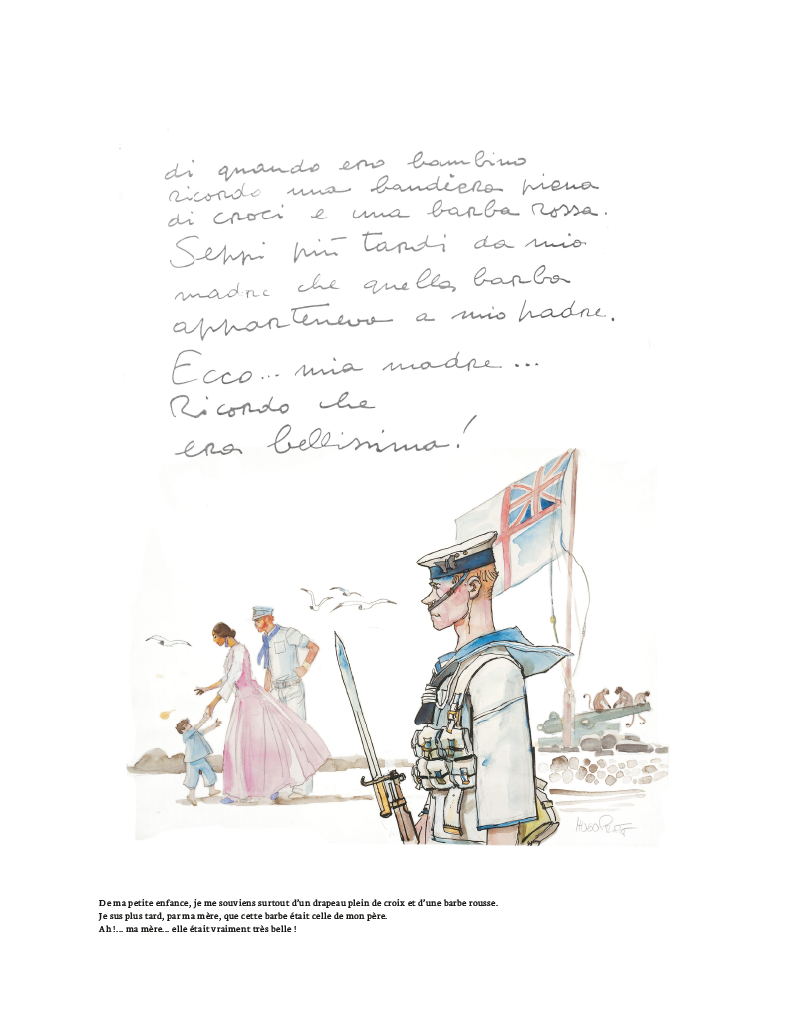 di quando ero bambino
ricordo una bandiera piena
di croci e una barba rossa.
Seppi più tardi da mio
madre che quella barba
apparteneva a mio padre.
Ecco... mia madre...
Ricordo che
era bellissima!
Hugo Pratt
De ma petite enfance, je me souviens surtout d'un drapeau plein de croix et d'une barbe rousse.
Je sus plus tard, par ma mère, que cette barbe était celle de mon père.
Ah !... ma mère... elle était vraiment très belle !